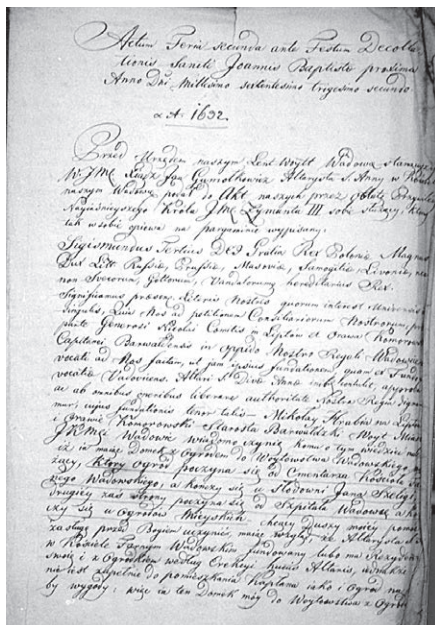 Actum Feria secunda ante Festum Decolla
tionis Sancti Joannis Baptistae proxima
Anno Dni Millesimo sexcentesimo trigesimo secundo
A. 1632.
Przed Urzędem naszym Lent Woytt Wadowa stanąwszy
W. JMć Xiądz Jan Altarysta S. Anny w
naszym Wadow podał do Akt naszych przez oblatę
Nayiaśnieyszego Króla JMć Zygmunta III sobie służący, który
tak w sobie opiewa na pargaminie wypisany:
Sigismundus Tertius DEI Gratia Rex Poloniae, Magnus
Dux Litt Russiae, Prussiae, Masoviae, Samogitiae, Livoniae, nec
non Svecorum, Gottorum, Vandalorumq haereditarius Rex.
Significamus praesen. Literis Nostris quorum interest Universis et
singulis, Quia Nos ad petitionem Consiliariorum Nostrorum,
Generosi Nicolai Comitis in Liptow et Orawa Komorow
Capitanei Barwaldensis in oppido Nostro Regali Wadowice
vocati ad Nos factam, ut jam ipsius fundationem, quam et
vocatia Vadoviens. Altari S. Divae Annae
ac ab omnibus oneribus liberare authoritate Nostra Regia
mur, cujus fundationis tenor talis Mikołay Hrabia na Liptow
i Orawie Komorowski Starosta Barwałdzki Woyt Miasta
JKMći Wadowic wiadomo czynię komu o tym wiedzieć
iż ia maiąc Domek z Ogrodem do Woytowstwa Wadowskiego
żący, który Ogrod poczyna się od Cmentarza Kościoła
nego Wadowskiego, a kończy się u Słodowni Jana Szeligi
drugiey zaś strony poczyna się od Szpitala Wadows a koń
czy się u Ogrodów Mieyskich, chcąc duszy moiey pomoc
zasługę przed Bogiem uczynić, maiąc wzgląd że Altarysta
w Kościele Farnym Wadowskim fundowany lubo ma Rezydencyą
swoię i z Ogrodkiem według Erekcyi
nie iest zupełnie do pomieszkania Kapłana iako i Ogrod
by wygody; więc ia ten Domek móy do Woytowstwa z Ogrodem